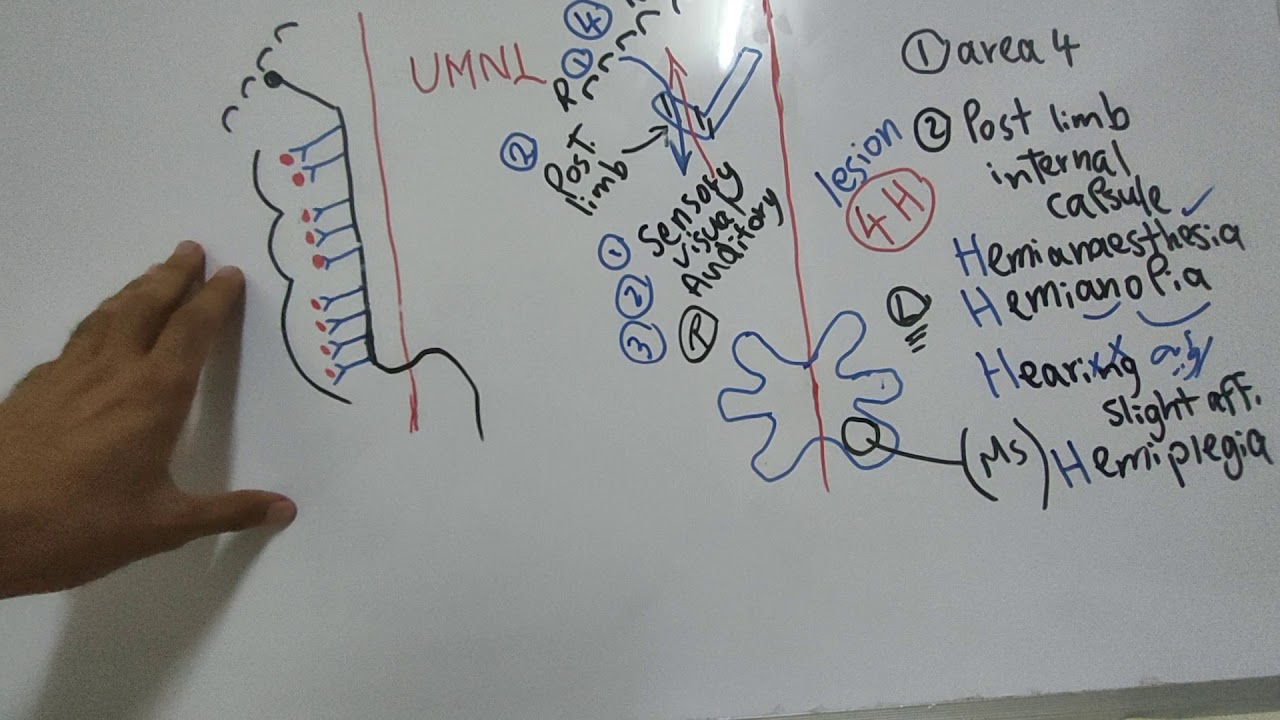 UMNL
④
①
R
②
Post.
limb
① Sensory
② visual
③ Auditory
R
① area 4
lesion
4H
② Post limb
internal
capsule ✓
Hemianaesthesia
Hemianopia
L
Hearing
slight aff.
(MS) Hemiplegia